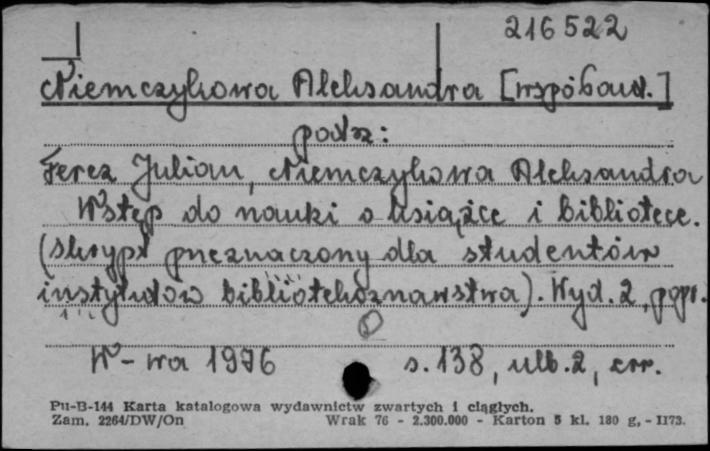 216522
Niemczykowa Aleksandra [współaut.]
patrz:
Ferez Julian, Niemczykowa Aleksandra
Wstęp do nauki o książce i bibliotece.
(skrypt przeznaczony dla studentów
instytutów bibliotekoznawstwa). Wyd. 2, popr.
W-wa 1976 s. 138, ulb. 2, err.
Pu-B-144 Karta katalogowa wydawnictw zwartych i ciągłych.
Zam. 2264/DW/On Wrak 76 - 2.300.000 - Karton 5 kl. 180 g, - II73.